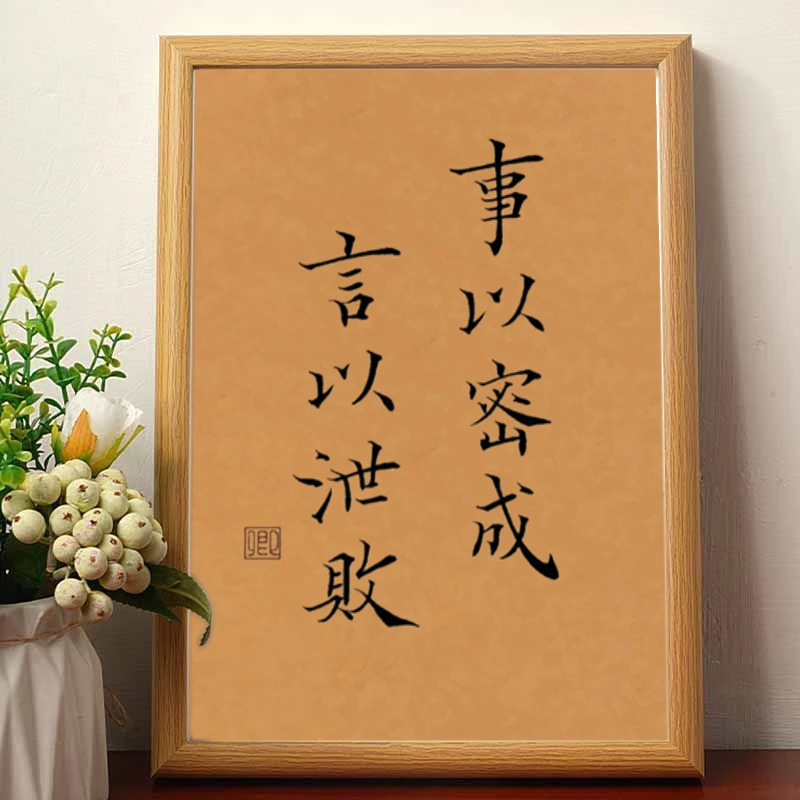 事以密成
言以泄敗
卿